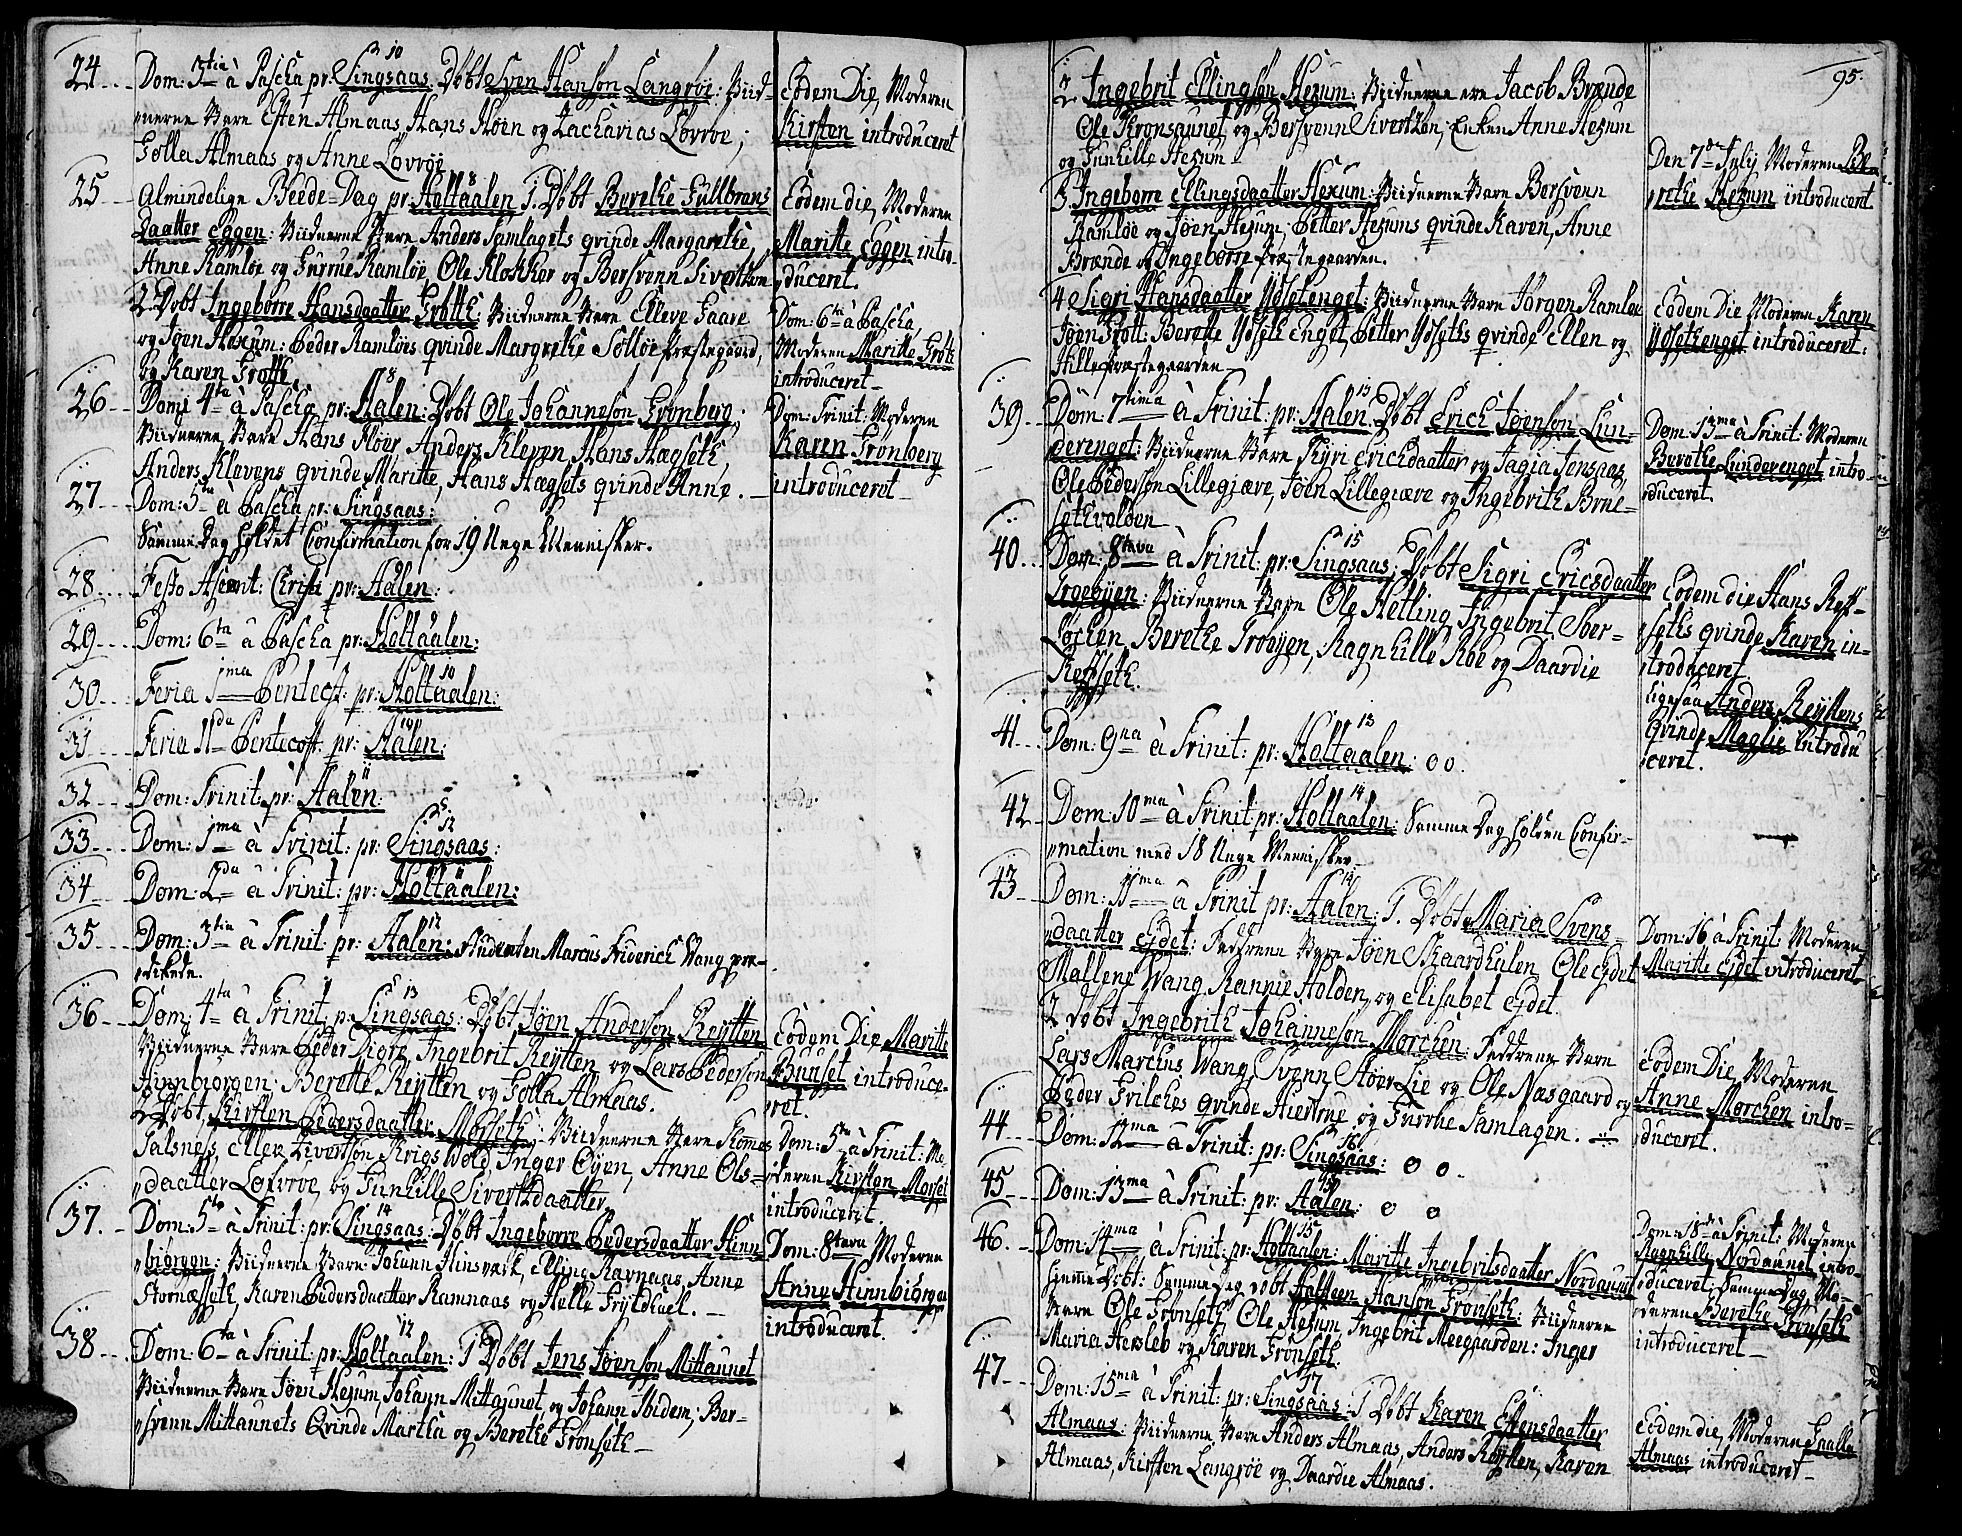 24 Dom: 3tia à Pascha pr: Singsaas. Døbt Sven Hanson Langrøe: Viid-
nerne Vare Esten Almaas, Hans Høen og Zacharias Lovrøe;
Golla Almaas og Anne Lovrøe
25 Almindelige Beede-Dag pr: Holtaalen 1. Døbt Berethe Gullbrans
Daatter Eggen: Viidnerne Vare Anders Samlagets qvinde Margarethe,
Anne Ramløe og Gurrue Ramløe, Ole Klokker og Bersvenn Sivertson
2 Døbt Ingeborre Hansdaatter Grøtte: Viidnerne Vare Elleve Gaare
og Joen Hexum: Peder Ramløes qvinde Margrethe Solløe Præstegaard,
og Karen Grøtte.
26 Domi 4ta à Pascha pr: Aalen: Døbt Ole Johanneson Grønberg,
Viidnerne Vare Hans Floer, Anders Kleven Hans Hægseth,
Anders Klevens qvinde Maritte, Hans Hægsets qvinde Anne.
27 Dom: 5ta à Pascha pr: Singsaas:
Samme Dag holdet Confirmation for 19 Unge Mennisker.
28 Festo Ascent: Christi pr: Aalen:
29 Dom: 6ta à Pascha pr: Holtaalen:
30 Feria 1ma Pentecost: pr: Holtaalen:
31 Feria IIda Pentecost pr: Aalen:
32 Dom: Trinit: pr: Aalen:
33 Dom: 1ma à Trinit: pr: Singsaas:
34 Dom: 2da à Trinit: pr: Holtaalen:
35 Dom: 3tia à Trinit: pr: Aalen: Studenten Marcus Friderich Wang præ-
dikede.
36 Dom: 4ta à Trinit: pr: Singsaas: Døbt Jøen Anderson Reytten
Viidnerne Vare Peder Digre, Ingebrit Reytten og Lars Pederson
Hinnbiørgen: Berette Reytten og Golla Almaas.
2 Døbt Kirsten Pedersdaatter Morseth: Viidnerne Vare Thomas
Galsness, Ellev Sivertson Krigs Vold, Inger Øyen, Anne Ols-
daatter Lofvroe, og Gunhille Sivertsdaatter
37. Dom: 5ta à Trinit: pr: Singsaas: Døbt Ingeborre Pedersdaatter Hinn
biørgen: Viidnerne Vare Johann Hinsverk, Elling Ravnaas, Anne
Stornæsseth, Karen Pedersdaatter Ramnaas og Helle Frytdhael.
38 Dom: 6ta à Trinit: pr: Holtaalen: 1 Døbt Jens Joenson Mittaunet
Viidnerne Vare Jøen Hexum, Johann Mittaunet, og Johann Ibidem; Ber-
svenn Mittaunets Qvinde Martha og Berethe Gronseth
Eodem Die, Moderen
Kirsten introduceret
Eodem die, Moderen
Maritte Eggen intro-
duceret.
Dom: 6ta à Pascha,
Moderen Maritte Grøte
introduceret
Dom: Trinit: Moderen
Karen Grønberg
introduceret
Eodem Die Maritte
Buuset introduce-
ret.
Dom: 5ta à Trinit: Mo-
deren Kirsten Morset
introduceret.
Dom: 8tava, Moderen
Anne Hinnbiørgen
introduceret.
95.
2 Ingebrit Ellingson Hexum: Viidnerne ere Jacob Brænde
Ole Kronsaunet og Bersvenn Sivertson; Enken Anne Hexum
og Gunhille Hexum
3 Ingeborre Ellingsdaatter Hexum: Viidnerne Vare Bersvenn
Ramløe og Jøen Hexum; Petter Hexums qvinde Karen, Anne
Brænde og Ingeborre Præstegaarden.
4 Sigri Hansdaatter Ydsetenget: Viidnerne Vare Jørgen Ramloe
Jøen Stott: Berette Ydseth Enget, Petter Ydseths qvinde Ellen og
Hille Præstegaarden
39. Dom: 7tima à Trinit: pr: Aalen. Døbt Erich Jøenson Lun-
derenget: Viidnerne Vare Kyri Erichdaatter og Jagia Jensaas,
Ole Pederson Lillegiære, Jøen Lillegiære og Ingebrith Brne-
sethvolden
40 Dom: 8tava à Trinit: pr: Singsaas; Døbt Sigri Ericsdaatter
Troeøyen: Viidnerne Vare Ole Hetling, Ingebrit Svar-
Løchen, Berethe Troøyen, Ragnhille Røe og Daardie
Refseth.
41 Dom: 9na à Trinit: pr: Holtaalen: oo.
42 Dom: 10ma à Trinit pr: Holtaalen: Samme Dag holden Confir-
mation med 18 Unge Mennisker
43 Dom: 11ma à Trinit pr: Aalen: 1. Døbt Maria Svens-
daatter Eydet: Faddrene Vare Jøen Skaardhalen Ole Eydet
Mallene Wang, Rannie Holden, og Elisabet Eydet.
2 Døbt Ingebrith Johanneson Morchen: Faddrene Vare
Lars Marchus Wang, Svenn Støer Lie og Ole Næsgaard og
Peder Grilches qvinde Hiertrue og Gurrhe Samlagen.
44 Dom: 12ma à Trinit: pr: Singsaas: o o.
45 Dom: 13ma à Trinit: pr: Aalen: o o
46. Dom: 14ma à Trinit: pr: Holtaalen: Maritte Ingebritsdaatter Nordaunet
hieme Døbt: Samme Dag Døbt Halsteen Hanson Gronseth: Viidnerne
Vare Ole Gronseth, Ole Hexum, Ingebrit Meegaarden: Inger
Maria Hersleb og Karen Gronseth.
47 Dom: 15ma à Trinit: pr: Singsaas: 1 Døbt Karen Estensdaatter
Almaas: Viidnerne Vare Anders Almaas, Anders Reytten, Karen
Almaas, Kirsten Langrøe og Daardie Almaas.
Den 7de July Moderen Be-
rethe Hexum introduceret
Eodem Die Moderen Karen
Ydsethenget introduceret:
Dom: 13ma à Trinit: Moderen
Berethe Lunderenget intro-
duceret.
Eodem die Hans Ref-
seths qvinde Karen in-
troduceret
ligesaa Anders Reyttens
Qvinde Maglie introdu
ceret.
Dom: 16 à Trinit: Moderen
Maritte Eydet introduceret
Eodem Die, Moderen
Anne Morchen intro-
duceret.
Dom: 18de à Trinit: Moderen
Ragnhille Nordaunet intro-
duceret; Samme Dag, Mo-
deren Berethe Gronseth
introduceret
Eodem die, Moderen Gaalle
Almaas introduceret